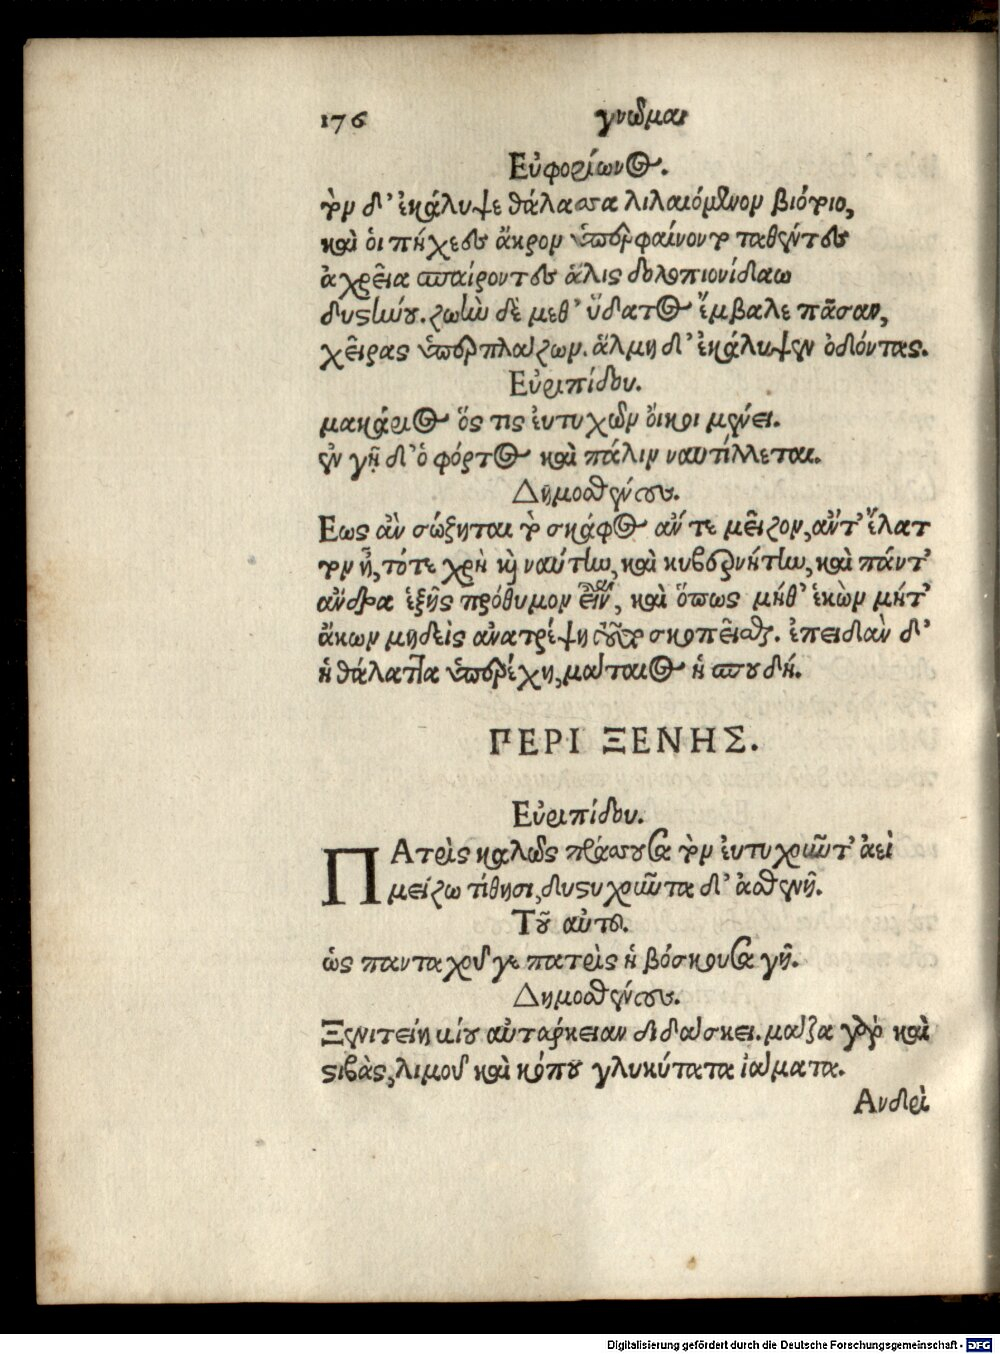 176 γνῶμαι
Εὐφορίωνος.
τὸν δ' ἐκάλυψε θάλασσα λιλαιόμενον βιότοιο,
καὶ οἱ πήχεες ἄκρον ὑπερφαίνοντο ταθέντες
ἀχρεῖα ἀσπαίροντες ἅλις δολοπιονίδαο
δυστήνου. ζωὴν δὲ μεθ' ὕδατος ἔμβαλε πᾶσαν,
χεῖρας ὑπερπλάζων. ἅλμη δ' ἐκάλυψεν ὀδόντας.
Εὐριπίδου.
μακάριος ὅς τις ἐυτυχῶν ὄικοι μένει.
ἐν γῇ δ' ὁ φόρτος καὶ πάλιν ναυτίλλεται.
Δημοσθένους.
Εως ἂν σώζηται τὸ σκάφος ἄν τε μεῖζον, ἄντ' ἔλατ
τον ᾖ, τότε χρὴ καὶ ναύτην, καὶ κυβερνήτην, καὶ πάντ'
ἄνδρα ἑξῆς πρόθυμον εἶναι, καὶ ὅπως μήθ' ἑκὼν μήτ'
ἄκων μηδεὶς ἀνατρέψη τοῦτο σκοπεῖσθαι. ἐπειδὰν δ'
ἡ θάλαττα ὑπερέχη, μάταιος ἡ σπουδή.
ΠΕΡΙ ΞΕΝΗΣ.
Εὐριπίδου.
ΠΑτρὶς καλῶς πράσσουσα τὸν ἐυτυχοῦντ' ἀεὶ
μείζω τίθησι, δυστυχοῦντα δ' ἀσθενῆ.
Τοῦ αὐτοῦ.
ὡς πανταχοῦ γε πατρὶς ἡ βόσκουσα γῆ.
Δημοσθένους.
Ξενιτείη βίου αὐτάρκειαν διδάσκει. μάζα γὰρ καὶ
στιβὰς, λιμοῦ καὶ κόπου γλυκύτατα ἰάματα.
Ανδρὶ
Digitalisierung gefördert durch die Deutsche Forschungsgemeinschaft - DFG